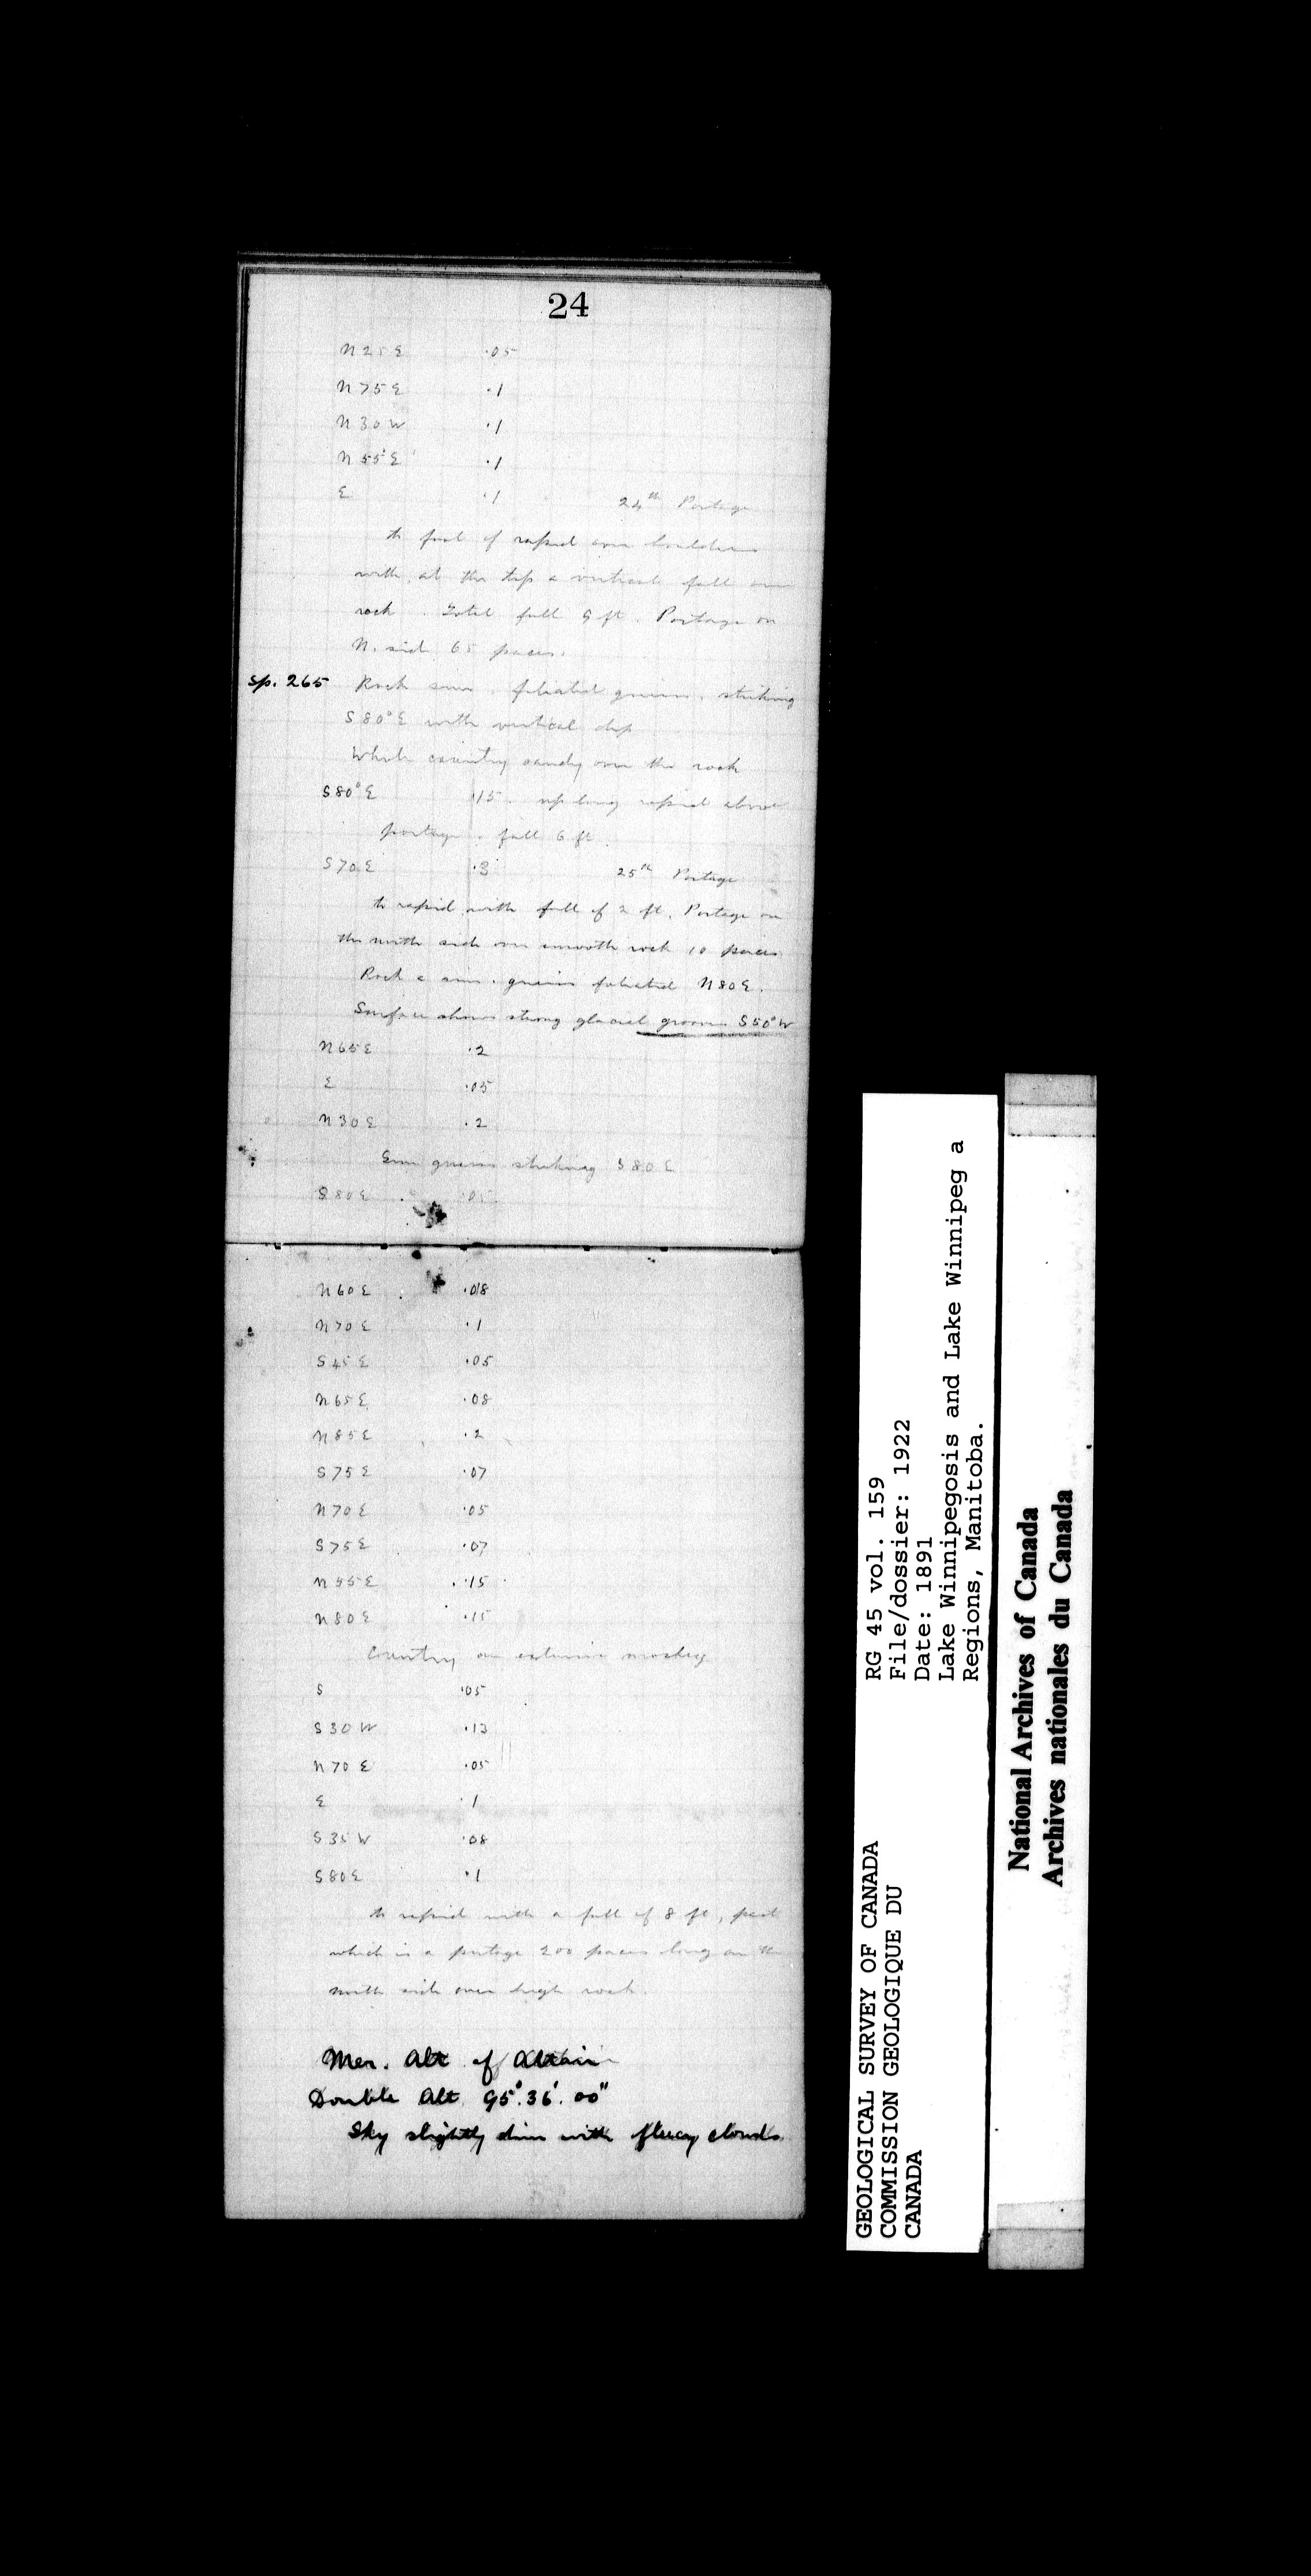 24
N25E .05
N75E .1
N30W .1
N55E .1
E .1 24th Portage
to foot of rapid over boulders
with, at the top a vertical fall over
rock. Total fall 9 ft. Portage on
N. side 65 paces.
Sp. 265 Rock foliated gneiss, striking
S80°E with vertical dip
Whole country sandy over the rock
S80°E .15 up long rapid above
portage. fall 6 ft.
S70E .3 25th Portage
to rapid with fall of 2 ft. Portage on
the north side over smooth rock 10 paces
Rock a gneiss foliated N80E.
Surface shows strong glacial grooves S50°W
N65E .2
E .05
N30E .2
gneiss striking S80E
S80E .05
N60E .08
N70E .1
S45E .05
N65E .08
N85E .2
S75E .07
N70E .05
S75E .07
N55E .15
N80E .15
Country an extensive muskeg
S .05
S30W .13
N70E .05
E .1
S35W .08
S80E .1
to rapid with a fall of 8 ft, past
which is a portage 200 paces long on the
north side over high rock.
Mer. Alt of Altair
Double Alt 95°.36'.00"
Sky slightly dim with fleecy clouds.
GEOLOGICAL SURVEY OF CANADA
COMMISSION GEOLOGIQUE DU
CANADA
RG 45 vol. 159
File/dossier: 1922
Date: 1891
Lake Winnipegosis and Lake Winnipeg a
Regions, Manitoba.
National Archives of Canada
Archives nationales du Canada